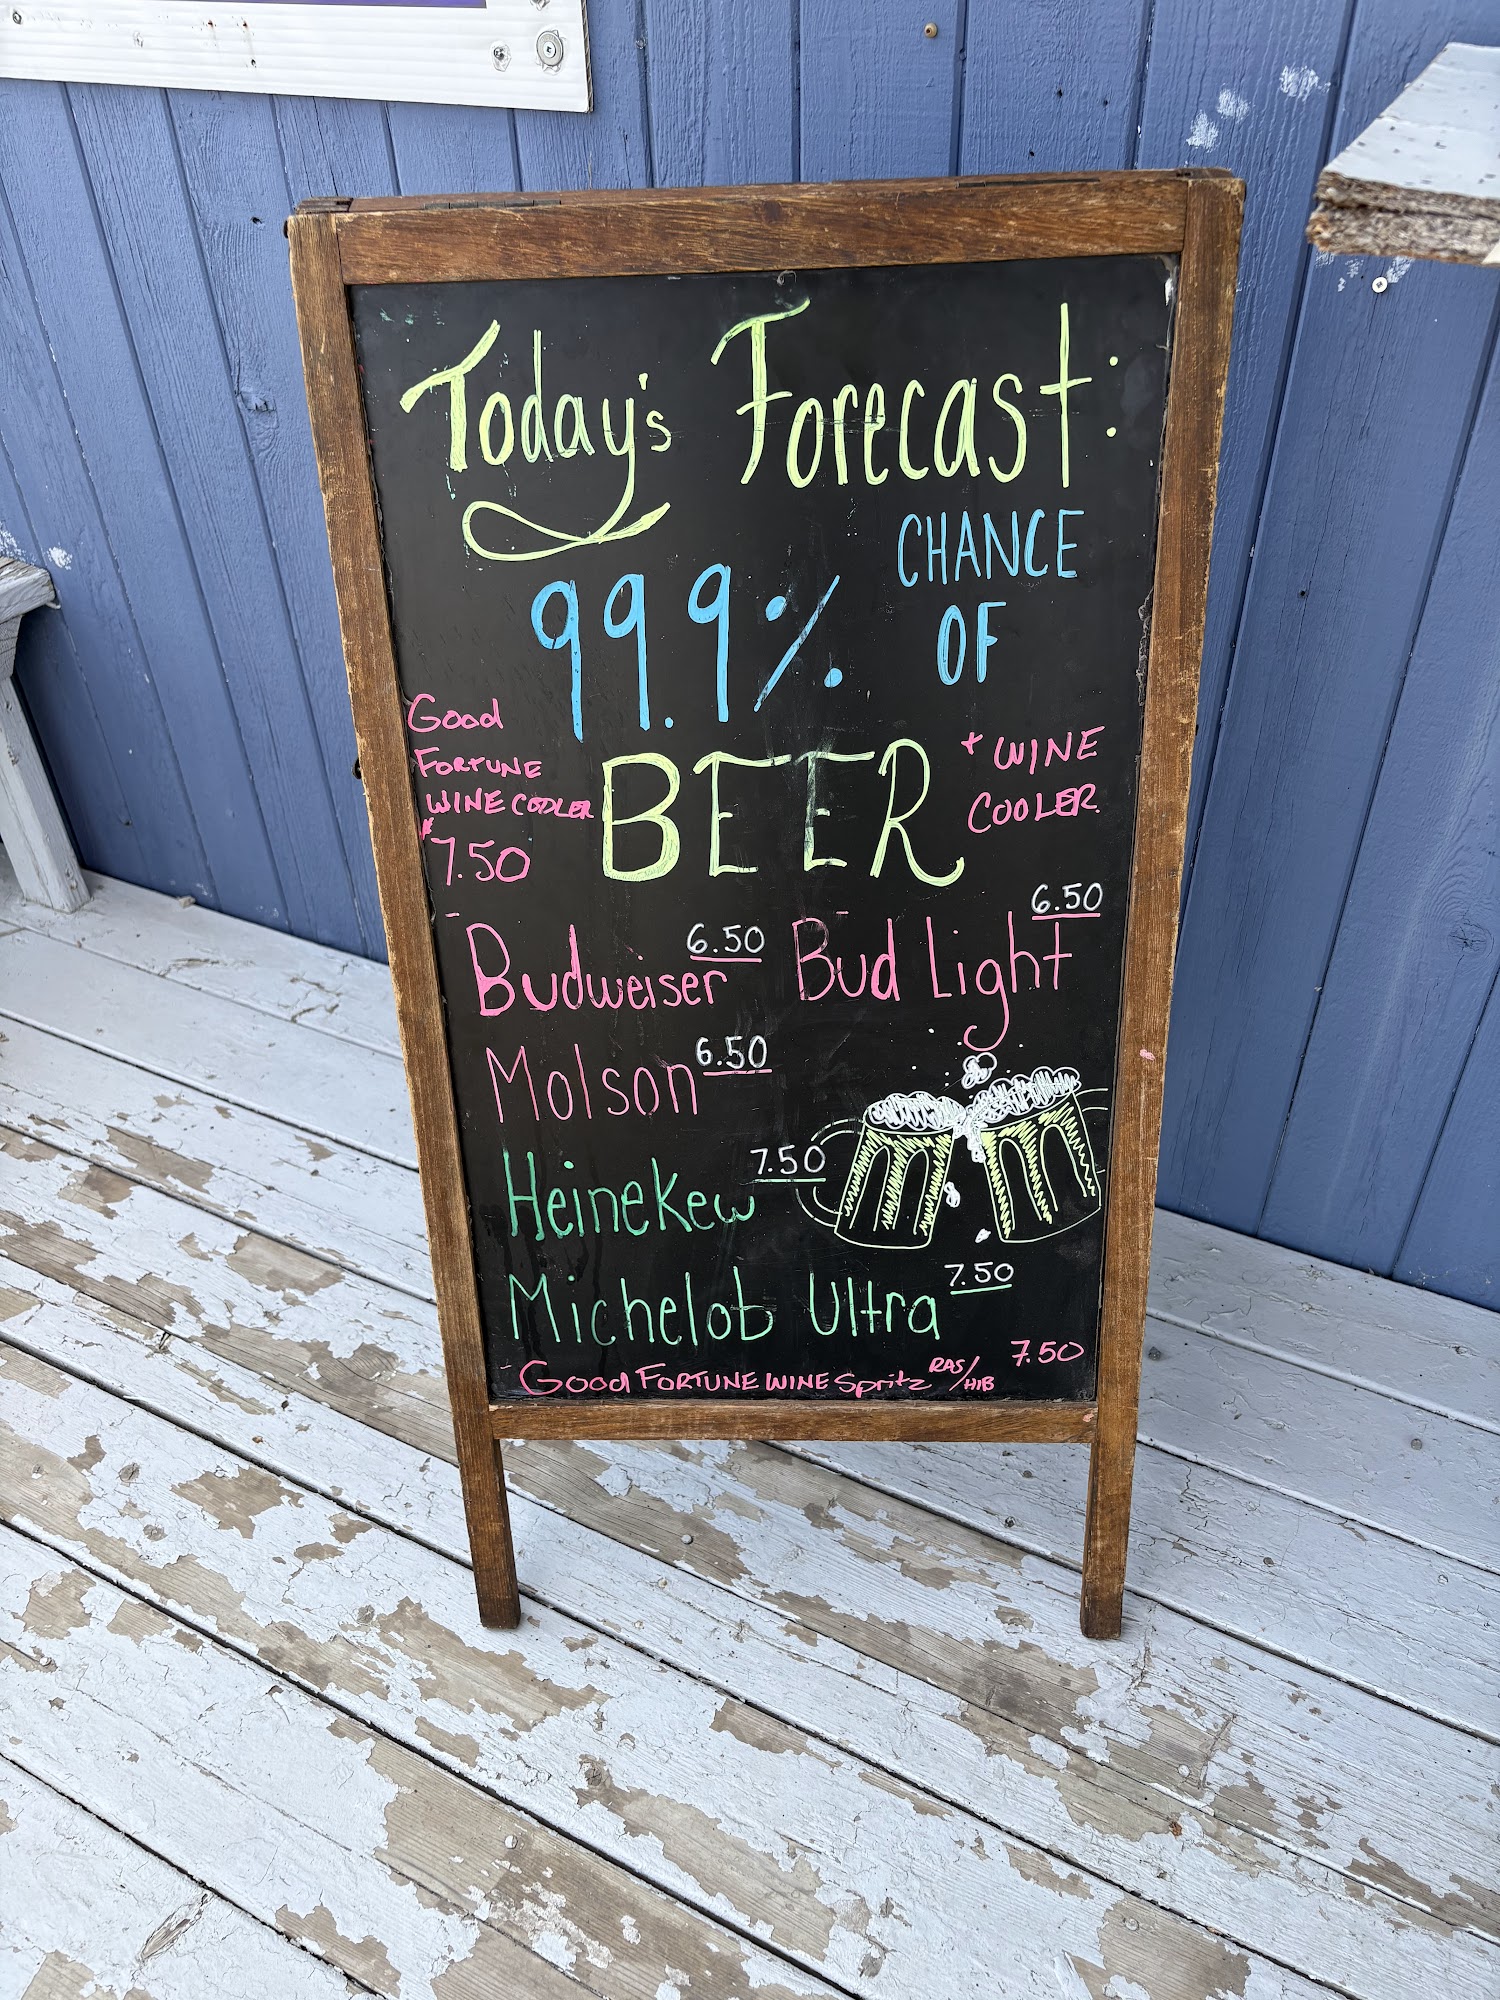 Today's Forecast:
99.9% CHANCE
OF
Good
FORTUNE
WINE COOLER
$7.50
BEER
+ WINE
COOLER
Budweiser 6.50 Bud Light 6.50
Molson 6.50
Heineken 7.50
Michelob Ultra 7.50
Good FORTUNE WINE Spritz RAS/HIB 7.50